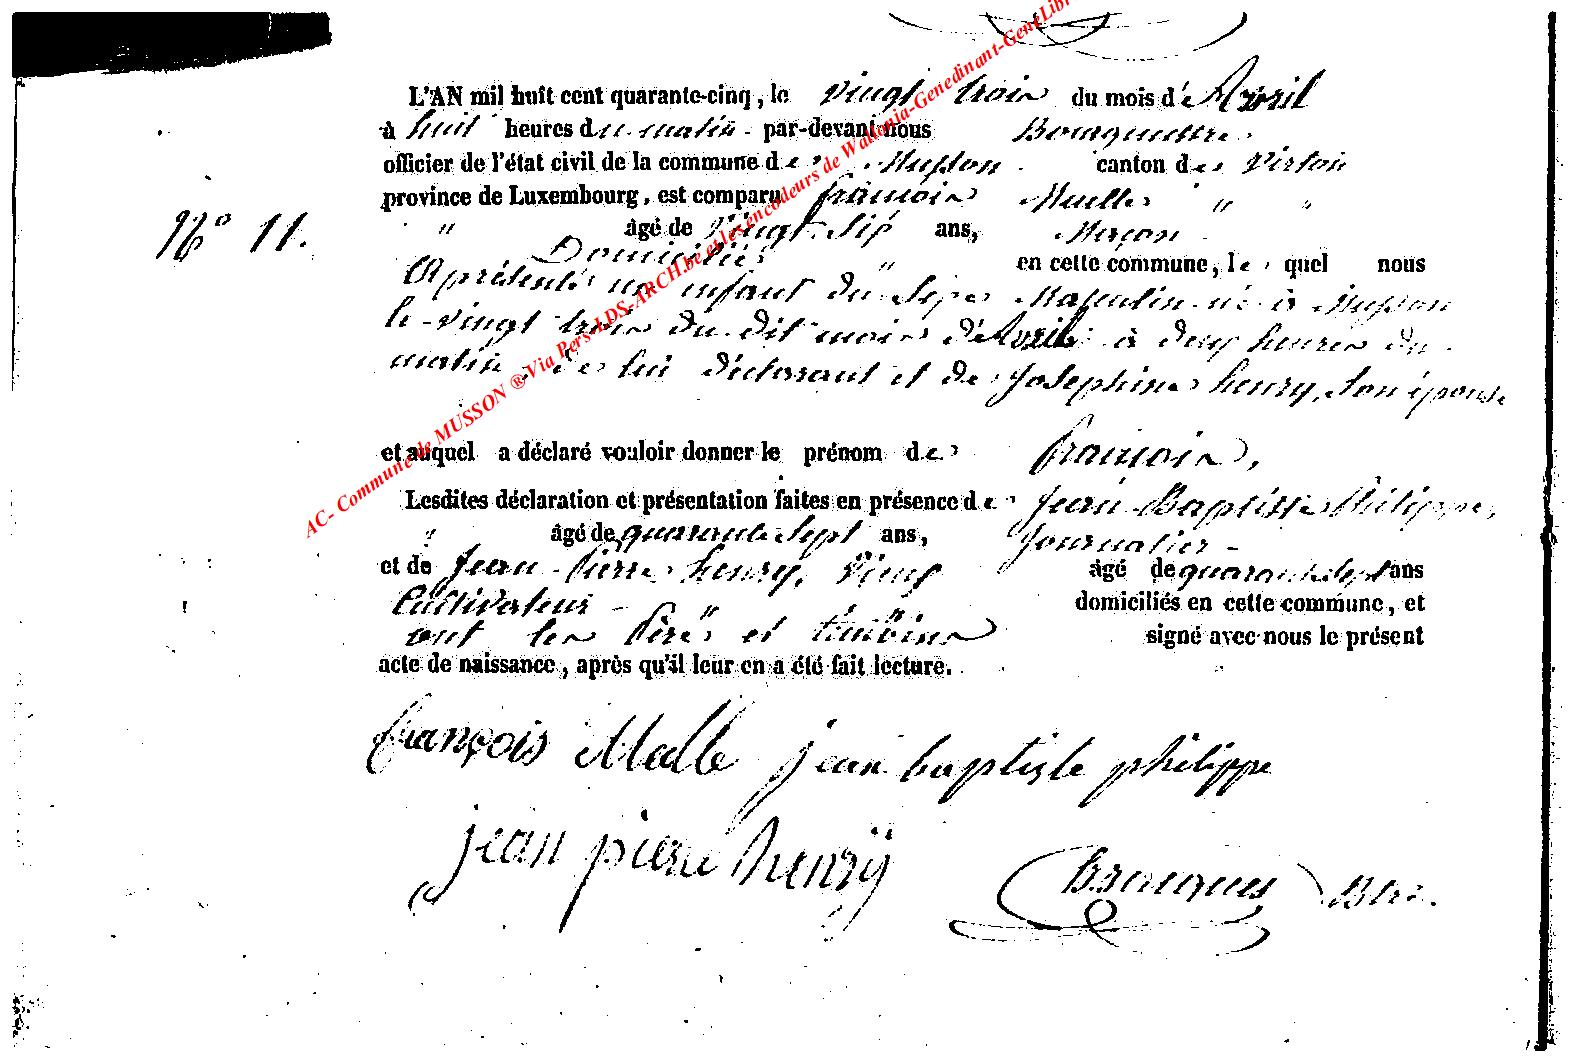 L'AN mil huit cent quarante-cinq, le vingt trois du mois d'Avril
à huit heures du matin par-devant nous Bourgmestre
officier de l'état civil de la commune de Musson canton de Virton
province de Luxembourg, est comparu francois Maelle " "
N° 11. " âgé de vingt six ans, Maçon
Domicilié " en cette commune, le quel nous
A présenté un enfant du sexe Masculin né à Musson
le vingt trois du dit mois d'Avril à deux heures du
matin, de lui déclarant et de Josephine henry, son épouse
et auquel a déclaré vouloir donner le prénom de francois,
Lesdites déclaration et présentation faites en présence de Jean Baptiste Philippe,
" âgé de quarante sept ans, Journalier
et de Jean Pierre henry, vieux âgé de quarante sept ans
Cultivateur " " domiciliés en cette commune, et
ont les Père et témoins signé avec nous le présent
acte de naissance, après qu'il leur en a été fait lecture.
françois Maelle jean baptiste philippe
jean pierre henry Btre.
AC- Commune de MUSSON ® Via Pers-LDS-ARCH.be et les encodeurs de Wallonia-Genedinant-GeneLibr